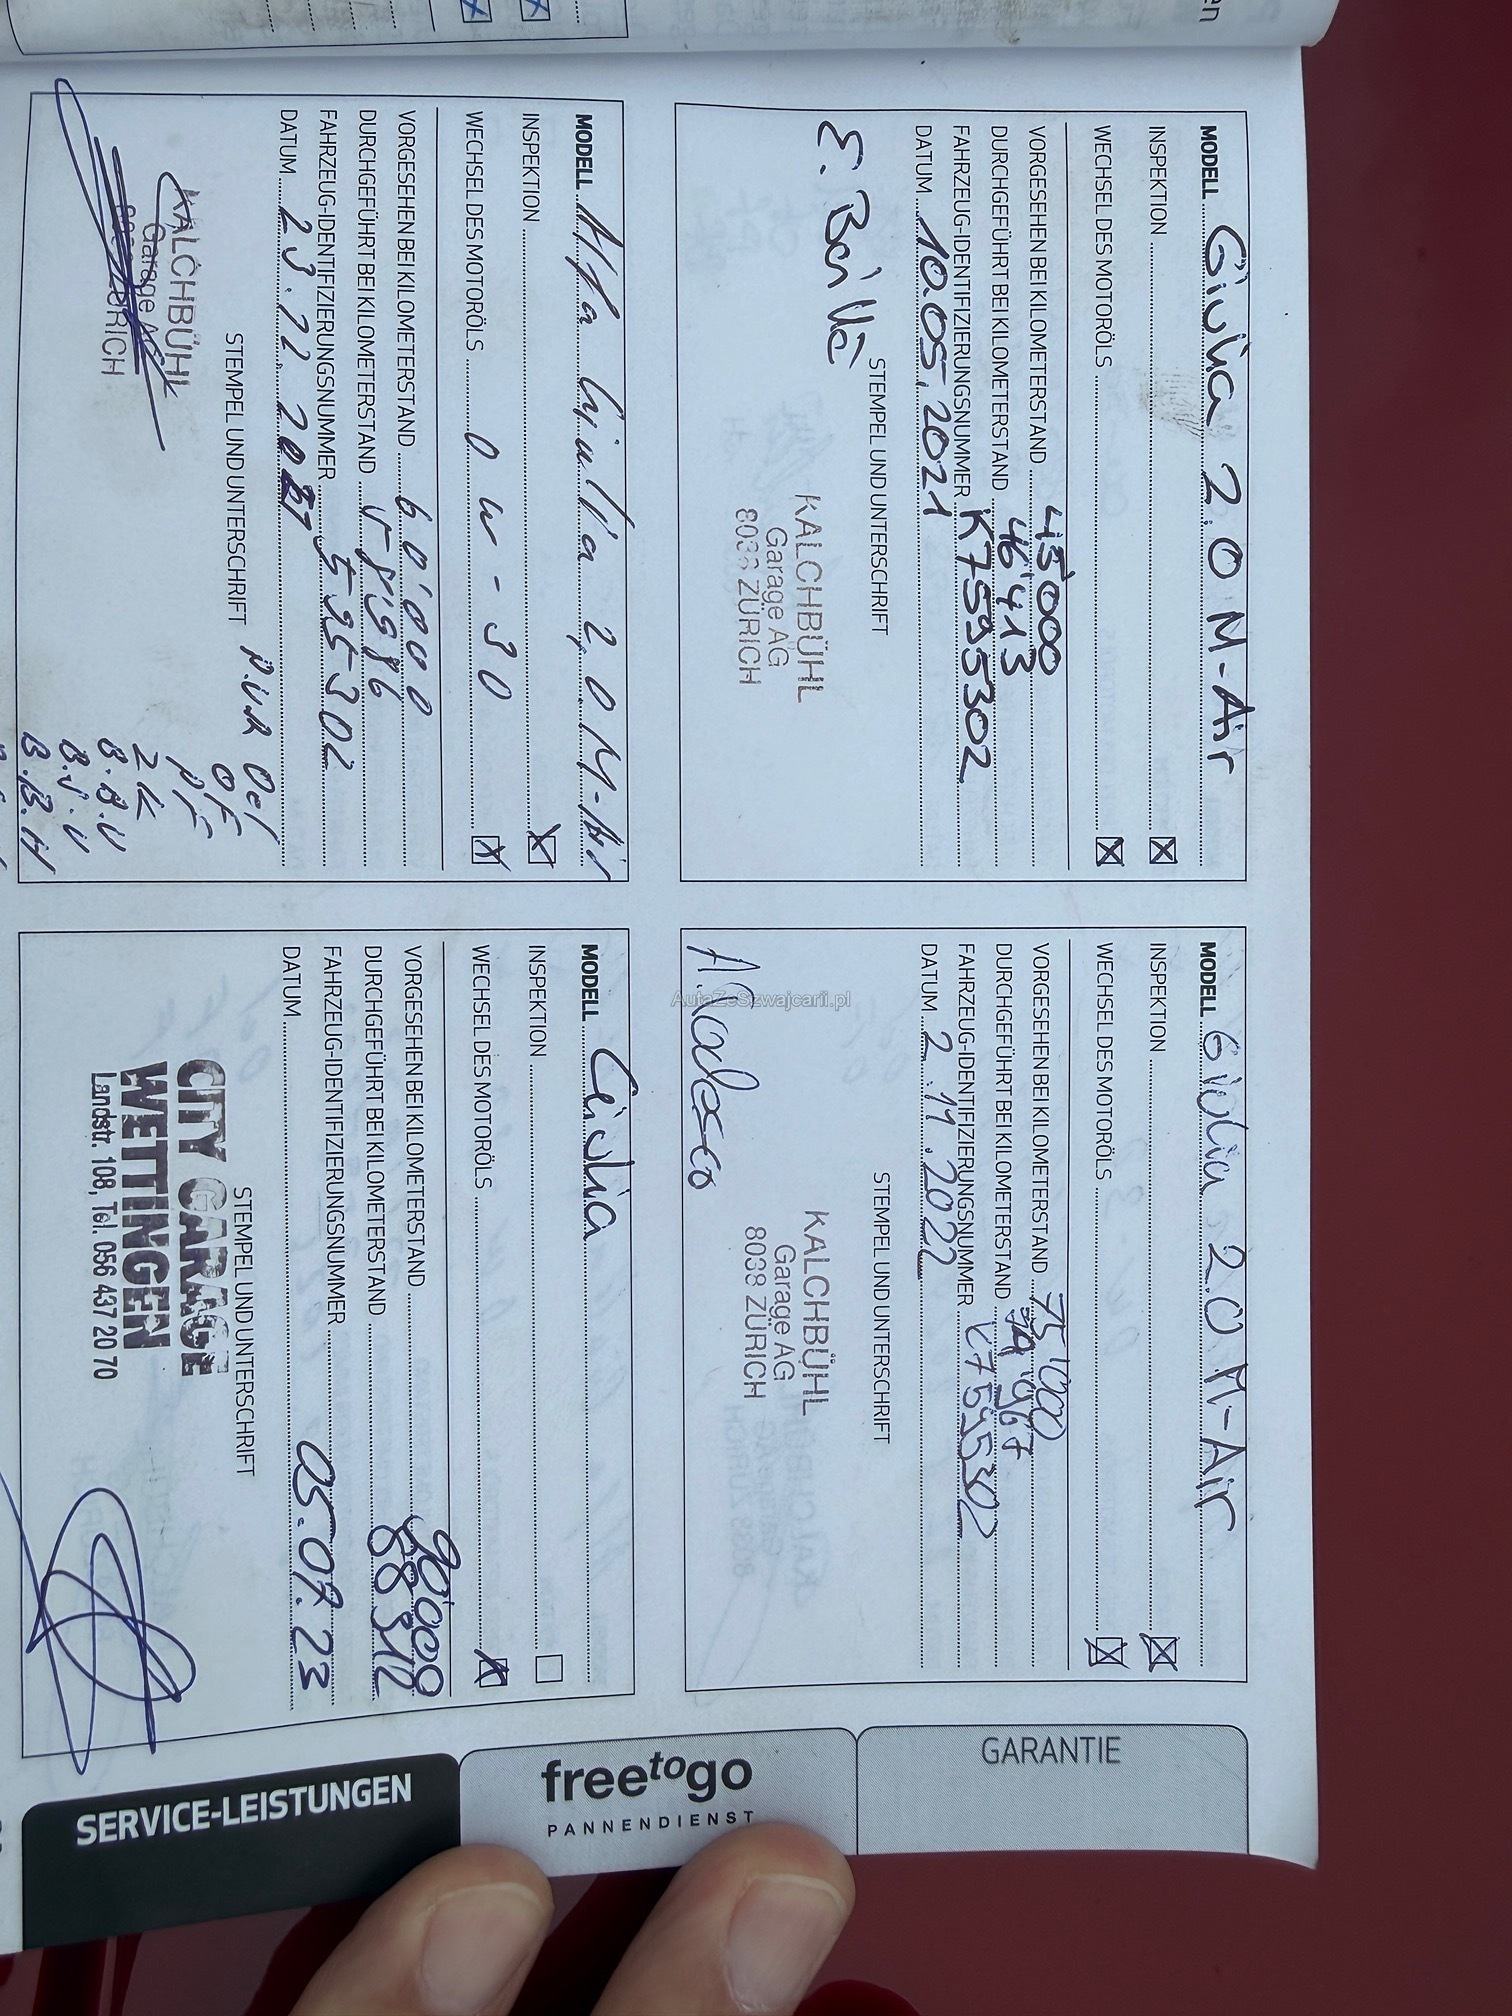 MODELL Giulia 2.0 M-Air
INSPEKTION
WECHSEL DES MOTORÖLS
VORGESEHEN BEI KILOMETERSTAND 45'000
DURCHGEFÜHRT BEI KILOMETERSTAND 46'413
FAHRZEUG-IDENTIFIZIERUNGSNUMMER K7595302
DATUM 10.05.2021
STEMPEL UND UNTERSCHRIFT
KALCHBÜHL
Garage AG
8038 ZÜRICH
MODELL Giulia 2.0 M-Air
INSPEKTION
WECHSEL DES MOTORÖLS
VORGESEHEN BEI KILOMETERSTAND 75'000
DURCHGEFÜHRT BEI KILOMETERSTAND
FAHRZEUG-IDENTIFIZIERUNGSNUMMER K7595302
DATUM 2.11.2022
STEMPEL UND UNTERSCHRIFT
KALCHBÜHL
Garage AG
8038 ZÜRICH
MODELL Alfa Giulia 2,0 M-Air
INSPEKTION
WECHSEL DES MOTORÖLS 0W-30
VORGESEHEN BEI KILOMETERSTAND 60'000
DURCHGEFÜHRT BEI KILOMETERSTAND 58'986
FAHRZEUG-IDENTIFIZIERUNGSNUMMER 595302
DATUM
STEMPEL UND UNTERSCHRIFT
KALCHBÜHL
Garage AG
ZÜRICH
Oel
OF
PF
2K
B.B.V
B.B.H
MODELL Giulia
INSPEKTION
WECHSEL DES MOTORÖLS
VORGESEHEN BEI KILOMETERSTAND 90'000
DURCHGEFÜHRT BEI KILOMETERSTAND 88312
FAHRZEUG-IDENTIFIZIERUNGSNUMMER
DATUM 05.07.23
STEMPEL UND UNTERSCHRIFT
CITY GARAGE
WETTINGEN
Landstr. 108, Tel. 056 437 20 70
GARANTIE
freetogo
PANNENDIENST
SERVICE-LEISTUNGEN
AutaZeSzwajcarii.pl